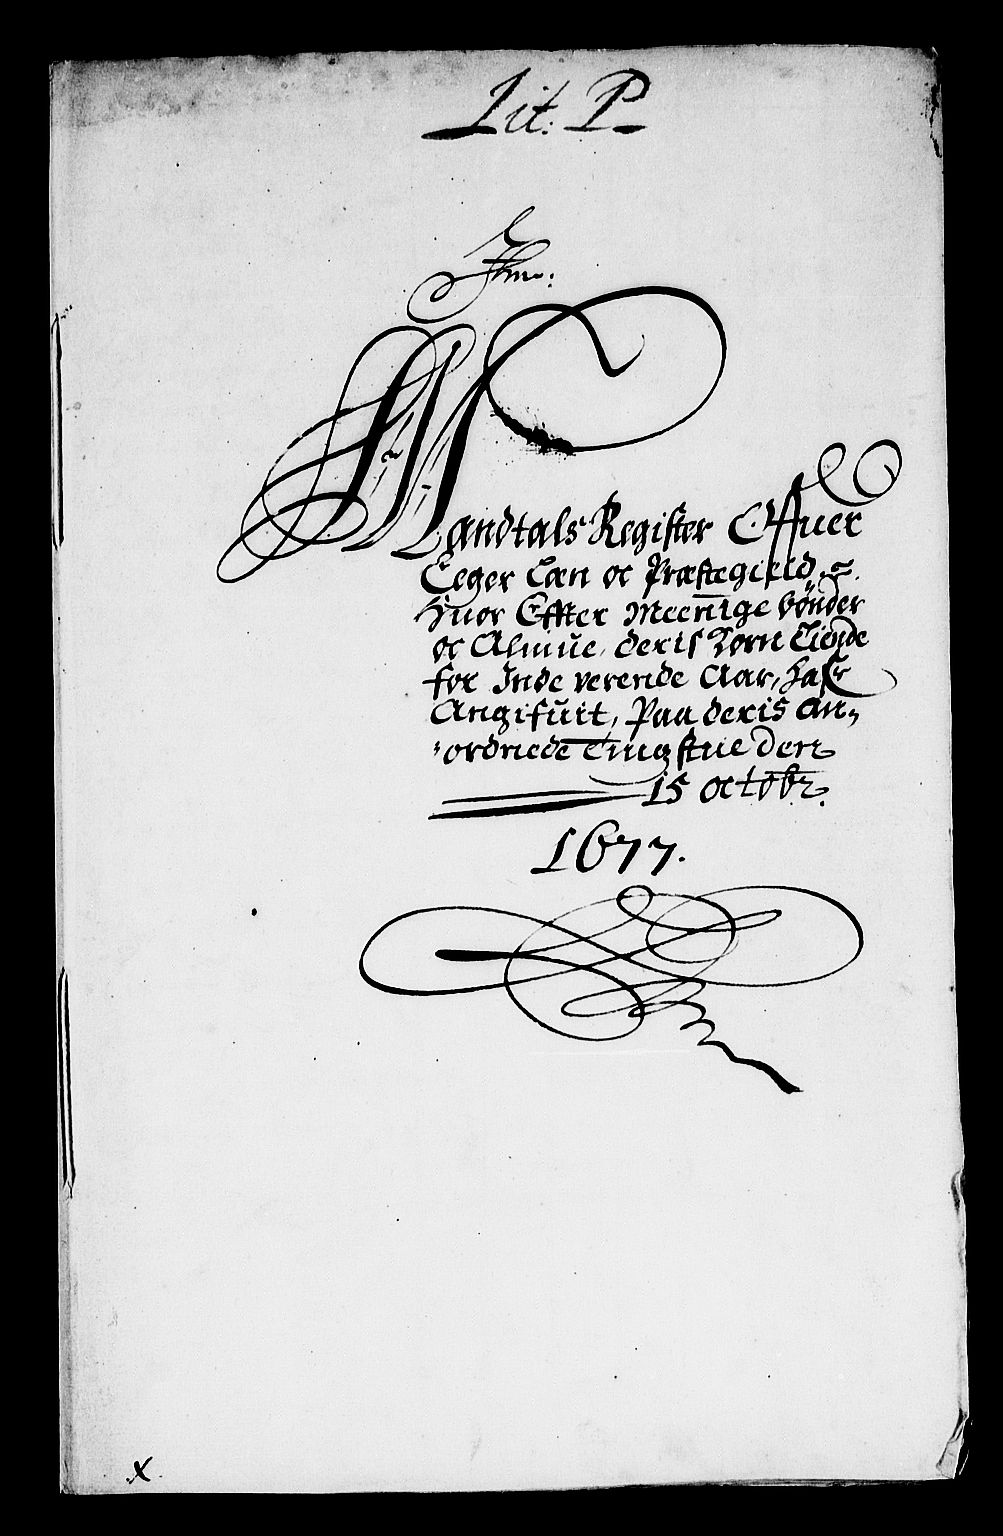 Lit: P.
Mandtals Register Offuer
Eeger Læn oc Præstegield
Huor Effter Meenige bönder
oc Almue, deris Korn Tiende
for Inde verende Aar, hafr
Angifuit, Paa deris an„
„ordnede Tingstue den
15 octobr.
1677.
X